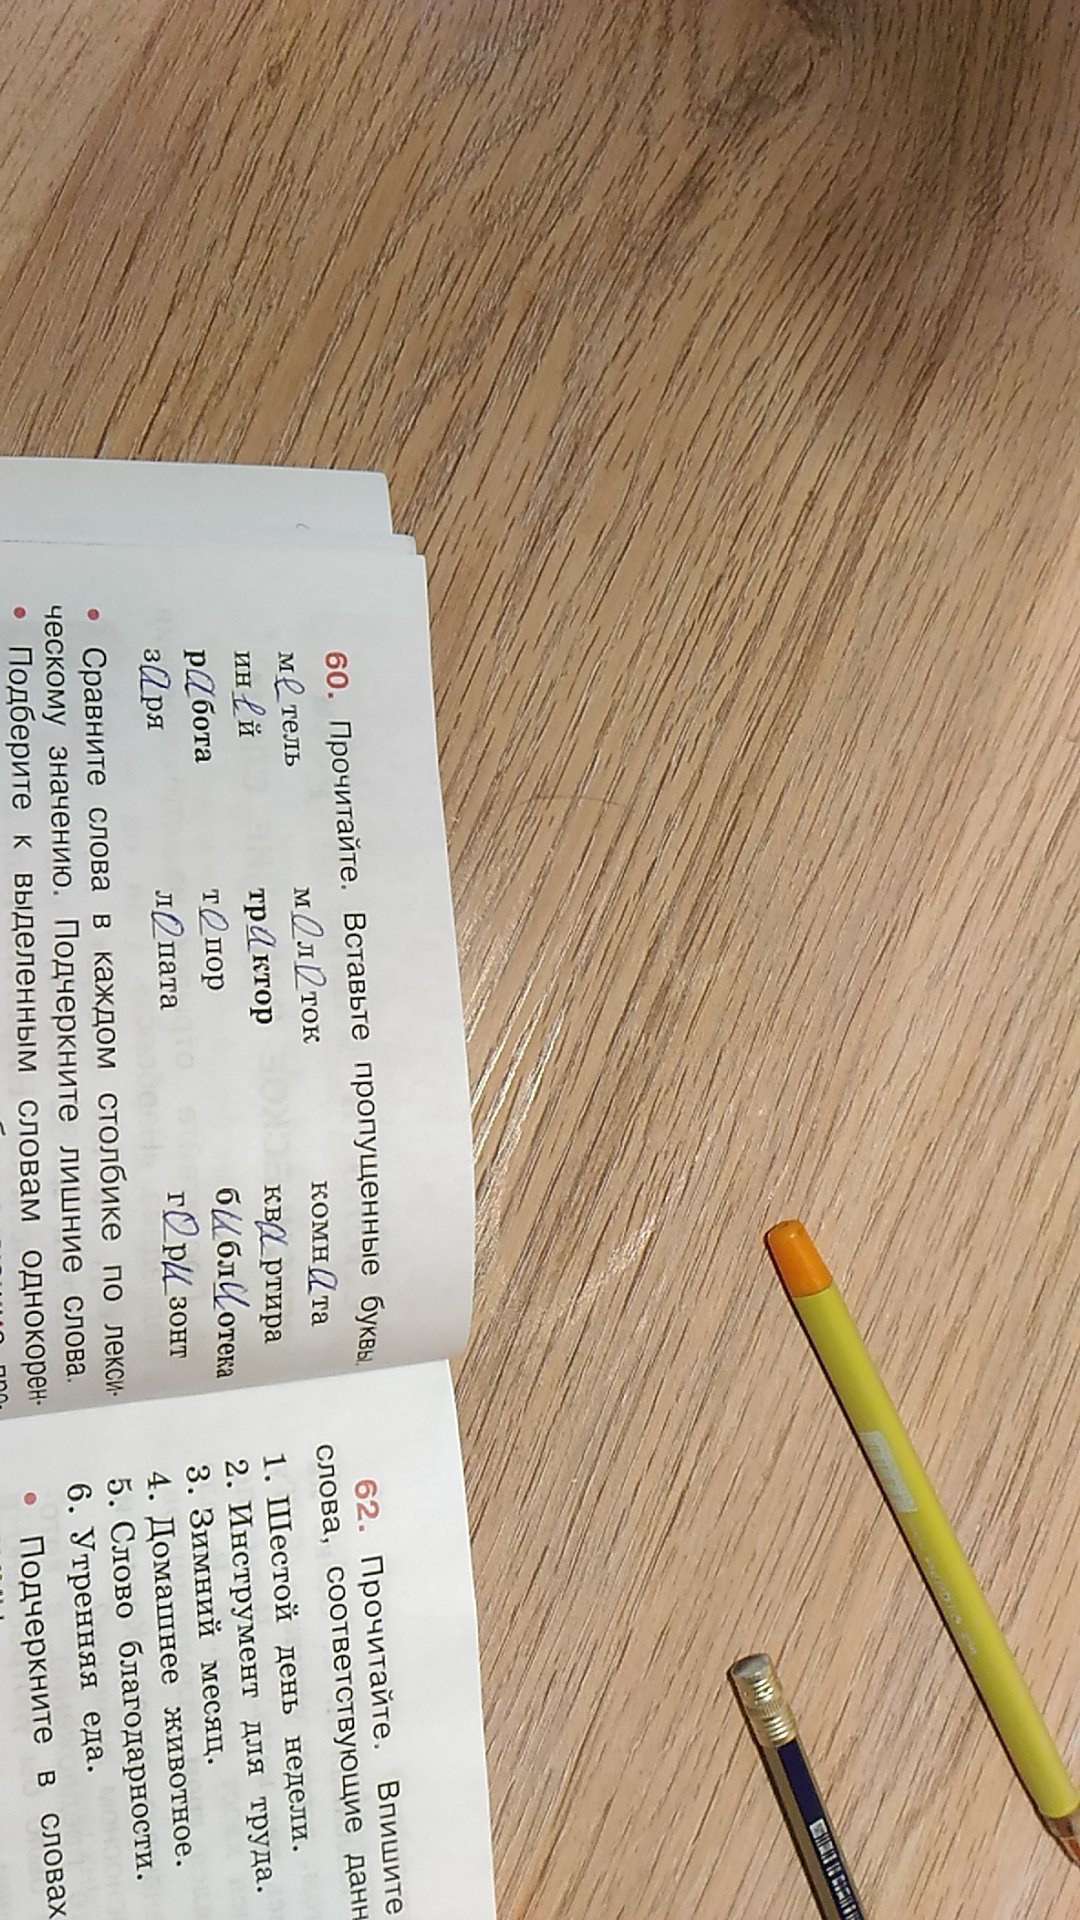 60. Прочитайте. Вставьте пропущенные буквы
метель молоток комната
иней трактор квартира
работа топор библиотека
заря лопата горизонт
• Сравните слова в каждом столбике по лекси-
ческому значению. Подчеркните лишние слова.
• Подберите к выделенным словам однокорен-
62. Прочитайте. Впишите
слова, соответствующие данн
1. Шестой день недели.
2. Инструмент для труда.
3. Зимний месяц.
4. Домашнее животное.
5. Слово благодарности.
6. Утренняя еда.
• Подчеркните в словах